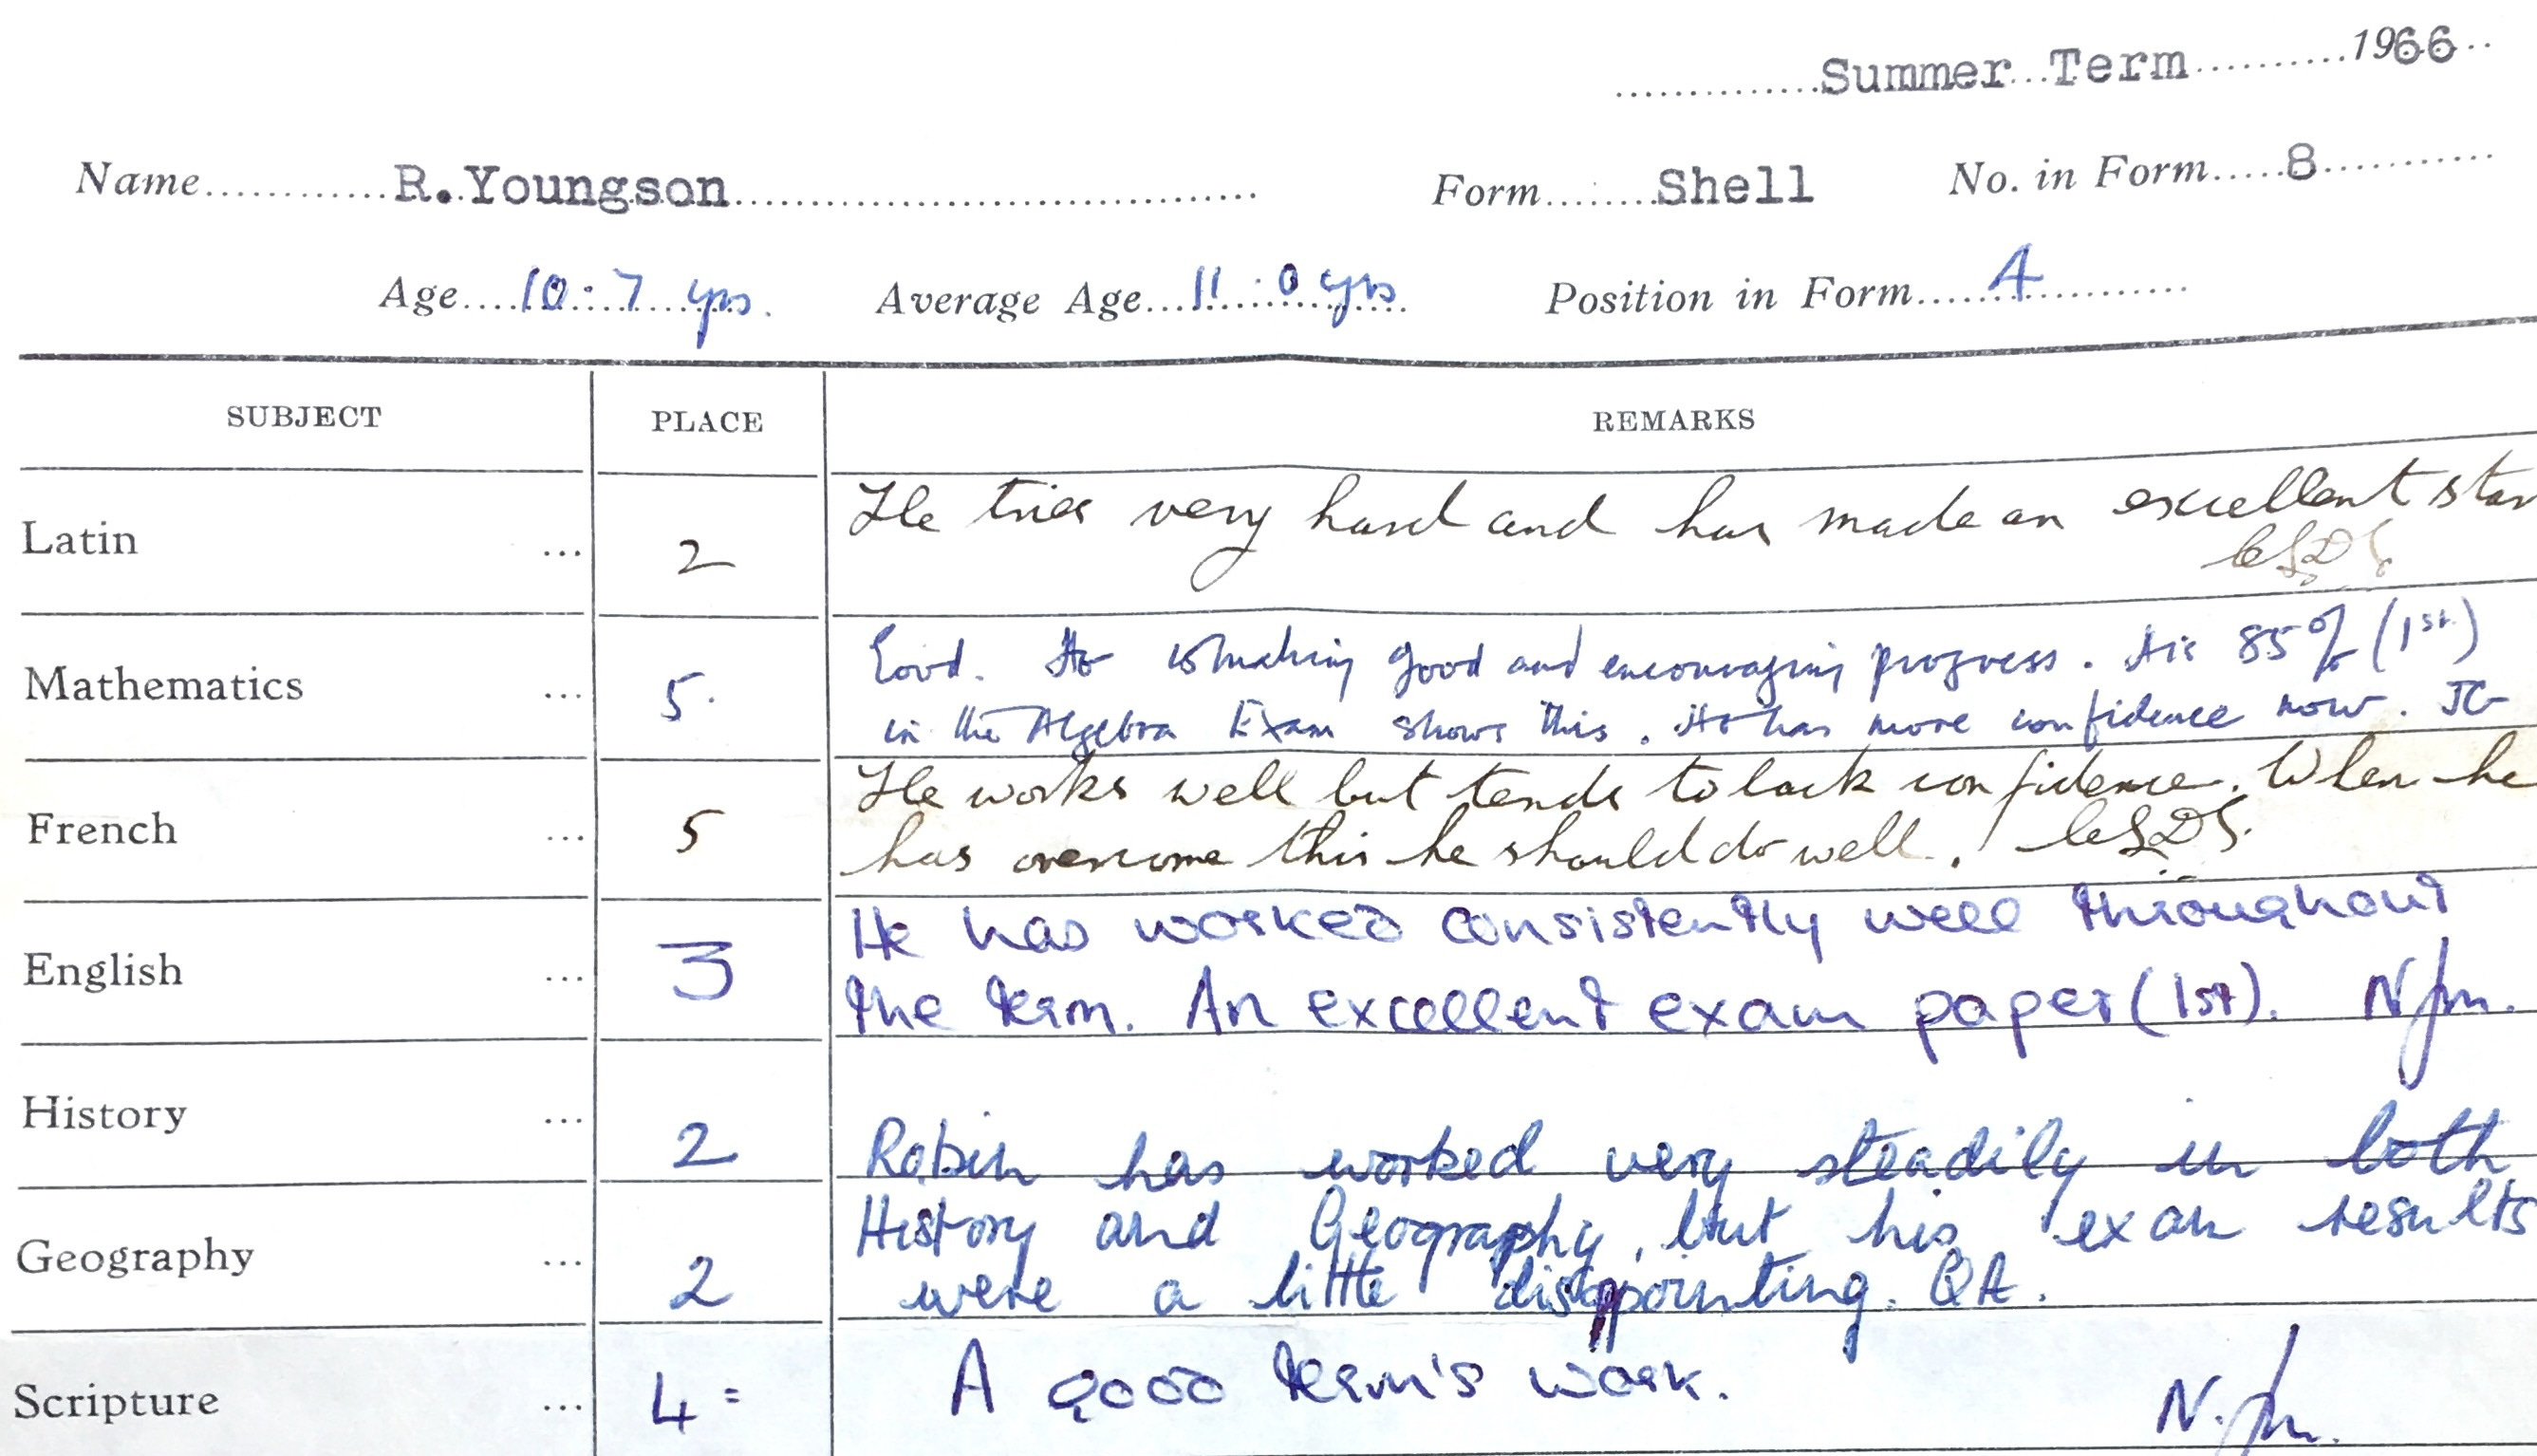 Summer Term 1966
Name R. Youngson Form Shell No. in Form 8
Age 10:7 yrs. Average Age 11:0 yrs Position in Form 4
SUBJECT PLACE REMARKS
Latin ... 2 He tries very hard and has made an excellent star
Mathematics ... 5. Good. He is making good and encouraging progress. His 85% (1st)
in the Algebra Exam shows this. He has more confidence now. JG
French ... 5 He works well but tends to lack confidence. When he
has overcome this he should do well.
English ... 3 He has worked consistently well throughout
the term. An excellent exam paper (1st). NJM.
History ... 2 Robin has worked very steadily in both
Geography ... 2 History and Geography, but his exam results
were a little disappointing. QA.
Scripture ... 4 = A good term's work. N.JM.